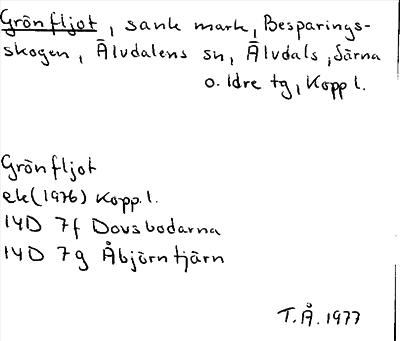 Grönfljot, sank mark, Besparings-
skogen, Älvdalens sn, Älvdals, Särna
o. Idre tg, Kopp l.
Grönfljot
ek (1976) Kopp. l.
14D 7f Dovsbodarna
14D 7g Åbjörntjärn
T.Å. 1977